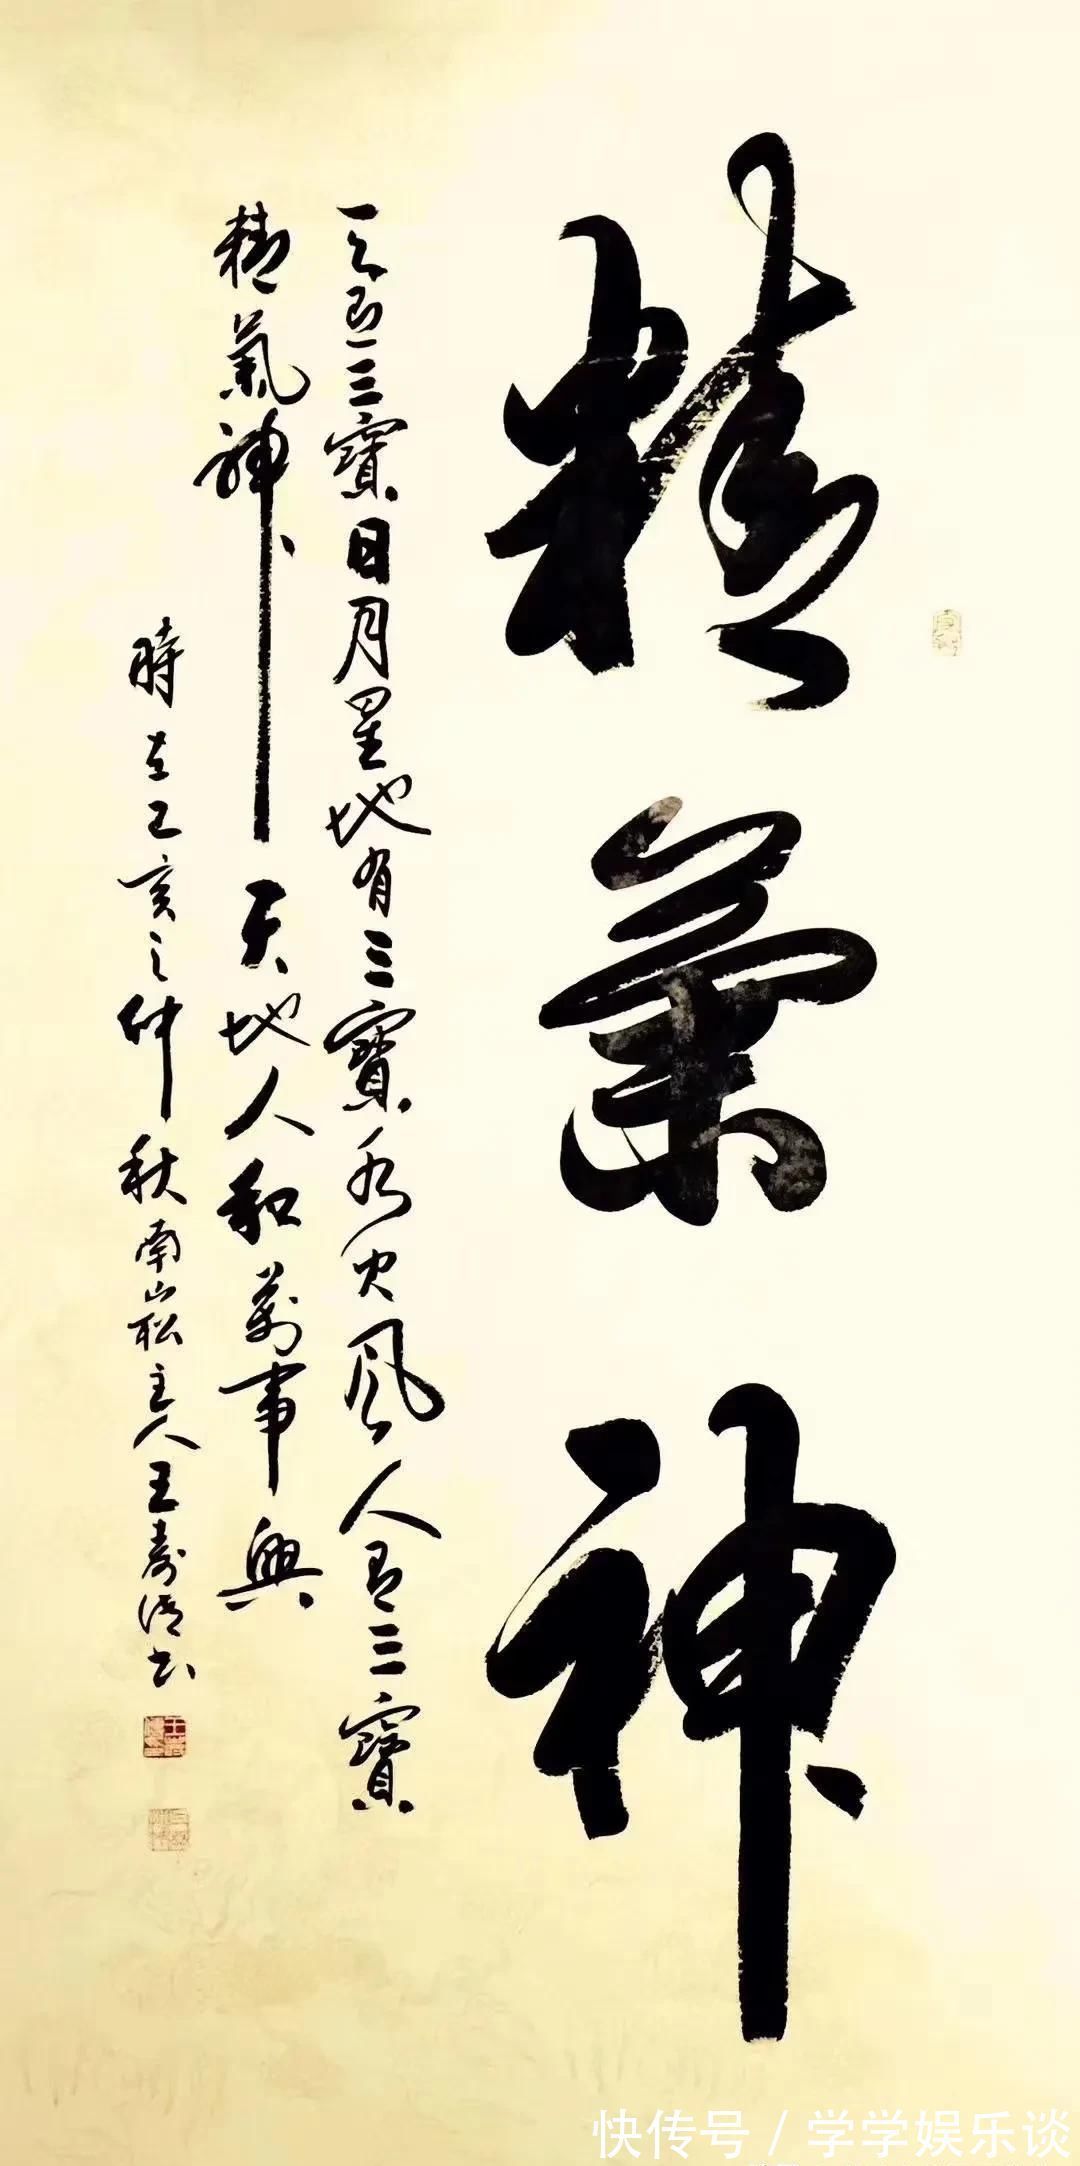 精氣神
天有三寶日月星地有三寶水火風人有三寶
精氣神天地人和萬事興
時在己亥之仲秋南山松主人王壽清书
快传号 / 学学娱乐谈